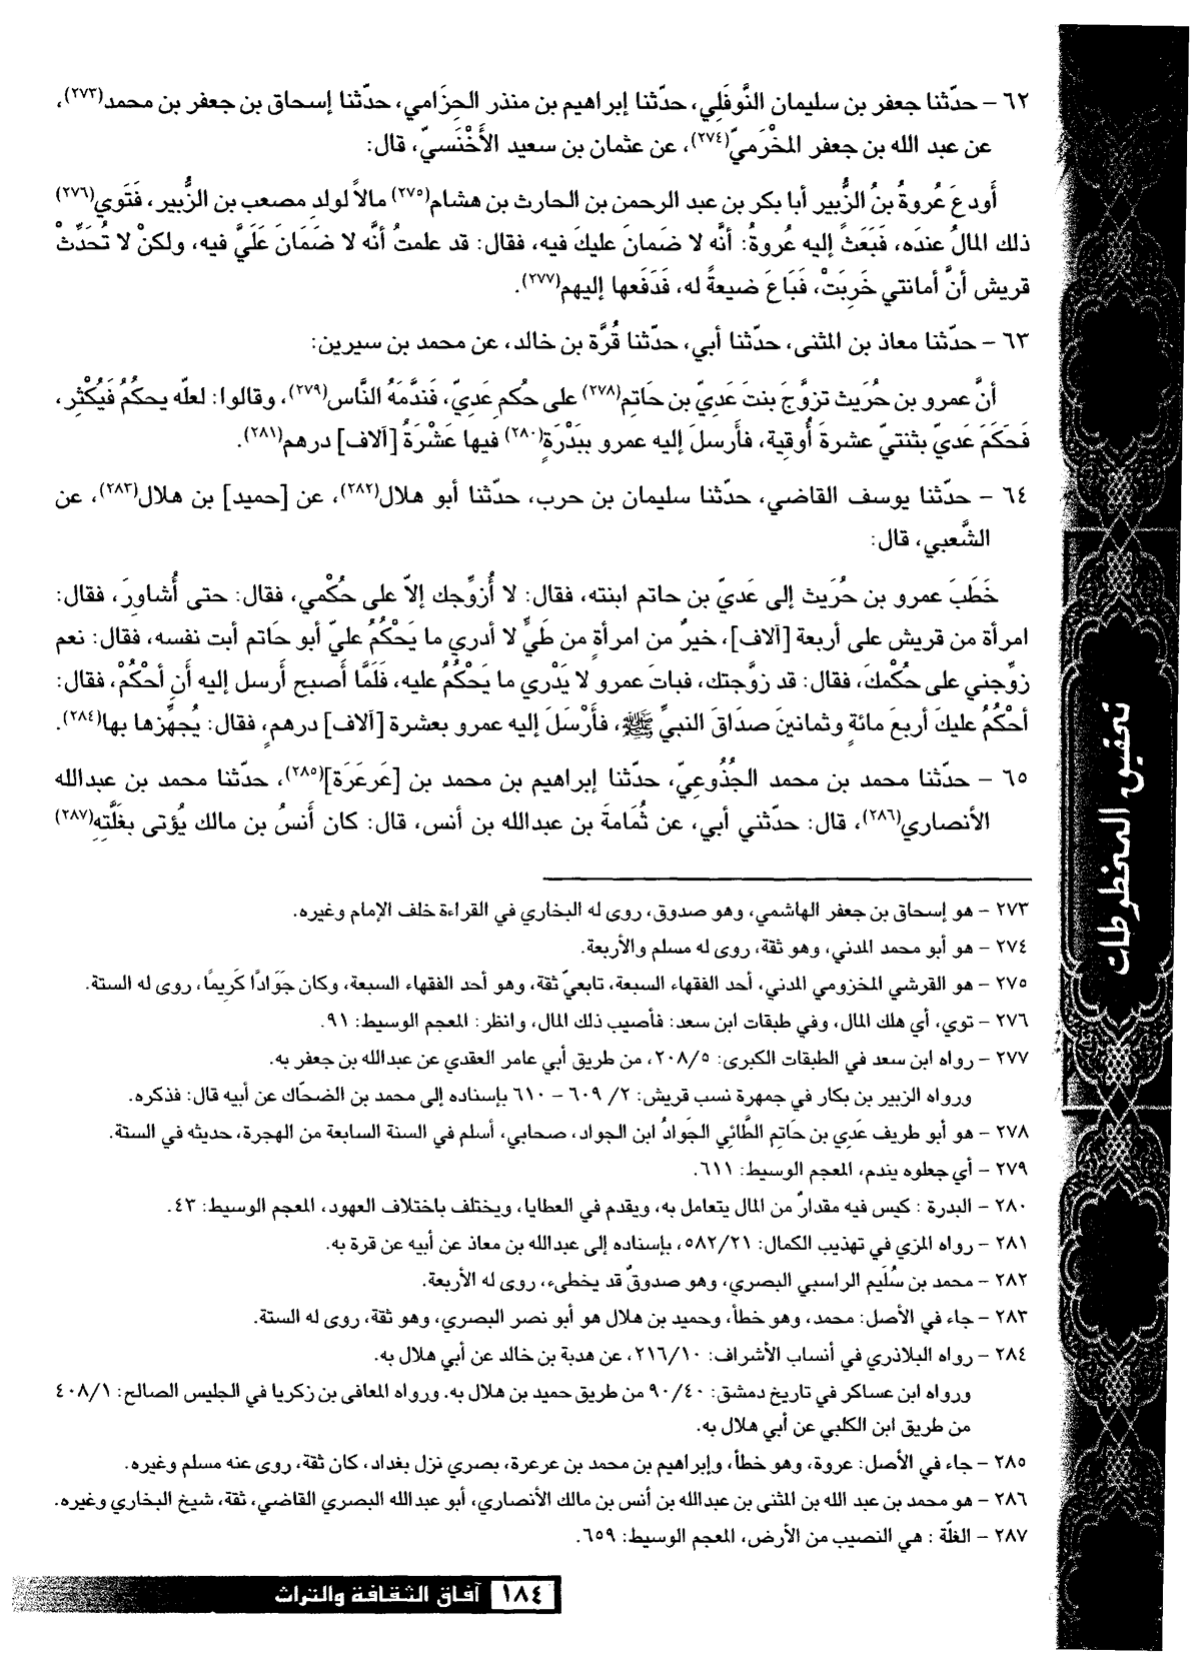 ٦٢ – حدّثنا جعفر بن سليمان النَّوفَلِي، حدّثنا إبراهيم بن منذر الحِزَامي، حدّثنا إسحاق بن جعفر بن محمد(٢٧٣)،
عن عبد الله بن جعفر المخْرَميّ(٢٧٤)، عن عثمان بن سعيد الأَخْنَسيّ، قال:
أَودعَ عُروةُ بنُ الزُّبير أبا بكر بن عبد الرحمن بن الحارث بن هشام(٢٧٥) مالاً لولدِ مصعب بن الزُّبير، فَتَوي(٢٧٦)
ذلك المالُ عندَه، فَبَعَثَ إليه عُروةُ: أنَّه لا ضَمانَ عليكَ فيه، فقال: قد علمتُ أنَّه لا ضَمَانَ عَلَيَّ فيه، ولكنْ لا تُحَدِّثْ
قريش أنَّ أمانتي خَرِبَتْ، فَبَاعَ ضيعةً له، فَدَفَعها إليهم(٢٧٧).
٦٣ – حدّثنا معاذ بن المثنى، حدّثنا أبي، حدّثنا قُرَّة بن خالد، عن محمد بن سيرين:
أنَّ عمرو بن حُرَيث تزوَّجَ بنتَ عَدِيّ بن حَاتِم(٢٧٨) على حكم عَدِيّ، فَندَّمَهُ النَّاس(٢٧٩)، وقالوا: لعلّه يحكُمُ فَيُكْثِر،
فَحَكَمَ عَديّ بثنتيّ عشرةَ أُوقية، فأرسلَ إليه عمرو ببَدْرَةٍ(٢٨٠) فيها عَشْرَةُ [آلاف] درهم(٢٨١).
٦٤ – حدّثنا يوسف القاضي، حدّثنا سليمان بن حرب، حدّثنا أبو هلال(٢٨٢)، عن [حميد] بن هلال(٢٨٣)، عن
الشَّعبي، قال:
خَطَبَ عمرو بن حُرَيث إلى عَديّ بن حاتم ابنته، فقال: لا أُزوِّجك إلاّ على حُكْمي، فقال: حتى أُشاوِرَ، فقال:
امرأة من قريش على أربعة [آلاف]، خيرٌ من امرأةٍ من طَيٍّ لا أدري ما يَحْكُمُ عليّ أبو حَاتم أبت نفسه، فقال: نعم
زوِّجني على حكْمكَ، فقال: قد زوَّجتك، فباتَ عمرو لا يَدْري ما يَحكُمُ عليه، فَلَمَّا أَصبح أَرسل إليه أَنِ أحْكُمْ، فقال:
أحْكُمُ عليكَ أربعَ مائةٍ وثمانينَ صدَاقَ النبيِّ ﷺ، فأَرْسَلَ إليه عمرو بعشرة [آلاف] درهمٍ، فقال: يُجهِّزها بها(٢٨٤).
٦٥ – حدّثنا محمد بن محمد الجُذُوعِيّ، حدّثنا إبراهيم بن محمد بن [عَرعَرَة](٢٨٥)، حدّثنا محمد بن عبدالله
الأنصاري(٢٨٦)، قال: حدّثني أبي، عن ثُمامةَ بن عبدالله بن أنس، قال: كان أَنسُ بن مالك يُؤتى بغَلَّتِهِ(٢٨٧)
٢٧٣ – هو إسحاق بن جعفر الهاشمي، وهو صدوق، روى له البخاري في القراءة خلف الإمام وغيره.
٢٧٤ – هو أبو محمد المدني، وهو ثقة، روى له مسلم والأربعة.
٢٧٥ – هو القرشي المخزومي المدني، أحد الفقهاء السبعة، تابعيّ ثقة، وهو أحد الفقهاء السبعة، وكان جَوَادًا كَرِيمًا، روى له الستة.
٢٧٦ – توي، أي هلك المال، وفي طبقات ابن سعد: فأصيب ذلك المال، وانظر: المعجم الوسيط: ٩١.
٢٧٧ – رواه ابن سعد في الطبقات الكبرى: ٢٠٨/٥، من طريق أبي عامر العقدي عن عبدالله بن جعفر به.
ورواه الزبير بن بكار في جمهرة نسب قريش: ٢/ ٦٠٩ – ٦١٠ بإسناده إلى محمد بن الضحّاك عن أبيه قال: فذكره.
٢٧٨ – هو أبو طريف عَدِي بن حَاتِم الطَّائِي الجَوادُ ابن الجواد، صحابي، أسلم في السنة السابعة من الهجرة، حديثه في الستة.
٢٧٩ – أي جعلوه يندم، المعجم الوسيط: ٦١١.
٢٨٠ – البدرة : كيس فيه مقدارٌ من المال يتعامل به، ويقدم في العطايا، ويختلف باختلاف العهود، المعجم الوسيط: ٤٣.
٢٨١ – رواه المزي في تهذيب الكمال: ٥٨٢/٢١، بإسناده إلى عبدالله بن معاذ عن أبيه عن قرة به.
٢٨٢ – محمد بن سُلَيم الراسبي البصري، وهو صدوقٌ قد يخطىء، روى له الأربعة.
٢٨٣ – جاء في الأصل: محمد، وهو خطأ، وحميد بن هلال هو أبو نصر البصري، وهو ثقة، روى له الستة.
٢٨٤ – رواه البلاذري في أنساب الأشراف: ٢١٦/١٠، عن هدبة بن خالد عن أبي هلال به.
ورواه ابن عساكر في تاريخ دمشق: ٩٠/٤٠ من طريق حميد بن هلال به. ورواه المعافى بن زكريا في الجليس الصالح: ٤٠٨/١
من طريق ابن الكلبي عن أبي هلال به.
٢٨٥ – جاء في الأصل: عروة، وهو خطأ، وإبراهيم بن محمد بن عرعرة، بصري نزل بغداد، كان ثقة، روى عنه مسلم وغيره.
٢٨٦ – هو محمد بن عبد الله بن المثنى بن عبدالله بن أنس بن مالك الأنصاري، أبو عبدالله البصري القاضي، ثقة، شيخ البخاري وغيره.
٢٨٧ – الغلّة : هي النصيب من الأرض، المعجم الوسيط: ٦٥٩.
١٨٤ آفاق الثقافة والتراث
تحقيق المخطوطات